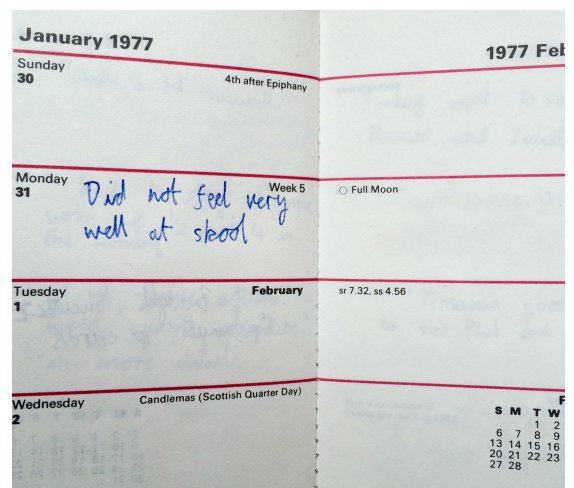 January 1977
Sunday
30
4th after Epiphany
Monday
31
Week 5
Did not feel very
well at skool
Tuesday
1
February
Wednesday
2
Candlemas (Scottish Quarter Day)
1977 Feb
Full Moon
sr 7.32, ss 4.56
F
S M T W
1 2
6 7 8 9
13 14 15 16
20 21 22 23
27 28